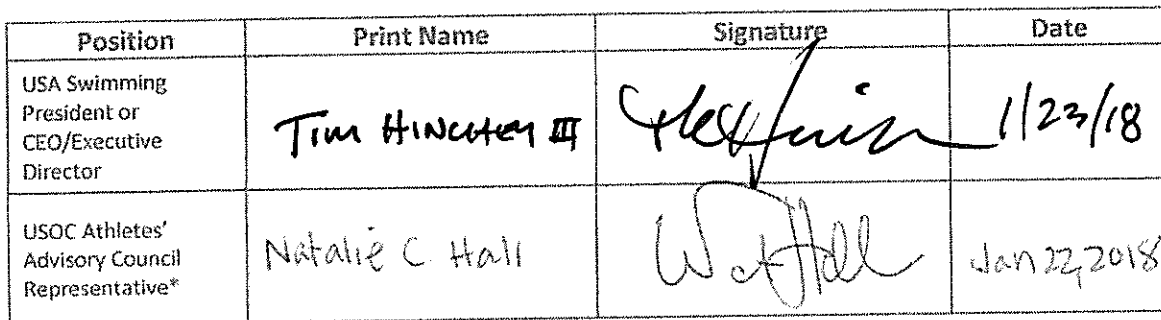 Position Print Name Signature Date
USA Swimming
President or
CEO/Executive
Director
Tim HINCHEY III
1/23/18
USOC Athletes'
Advisory Council
Representative*
Natalie C. Hall
Jan 22, 2018